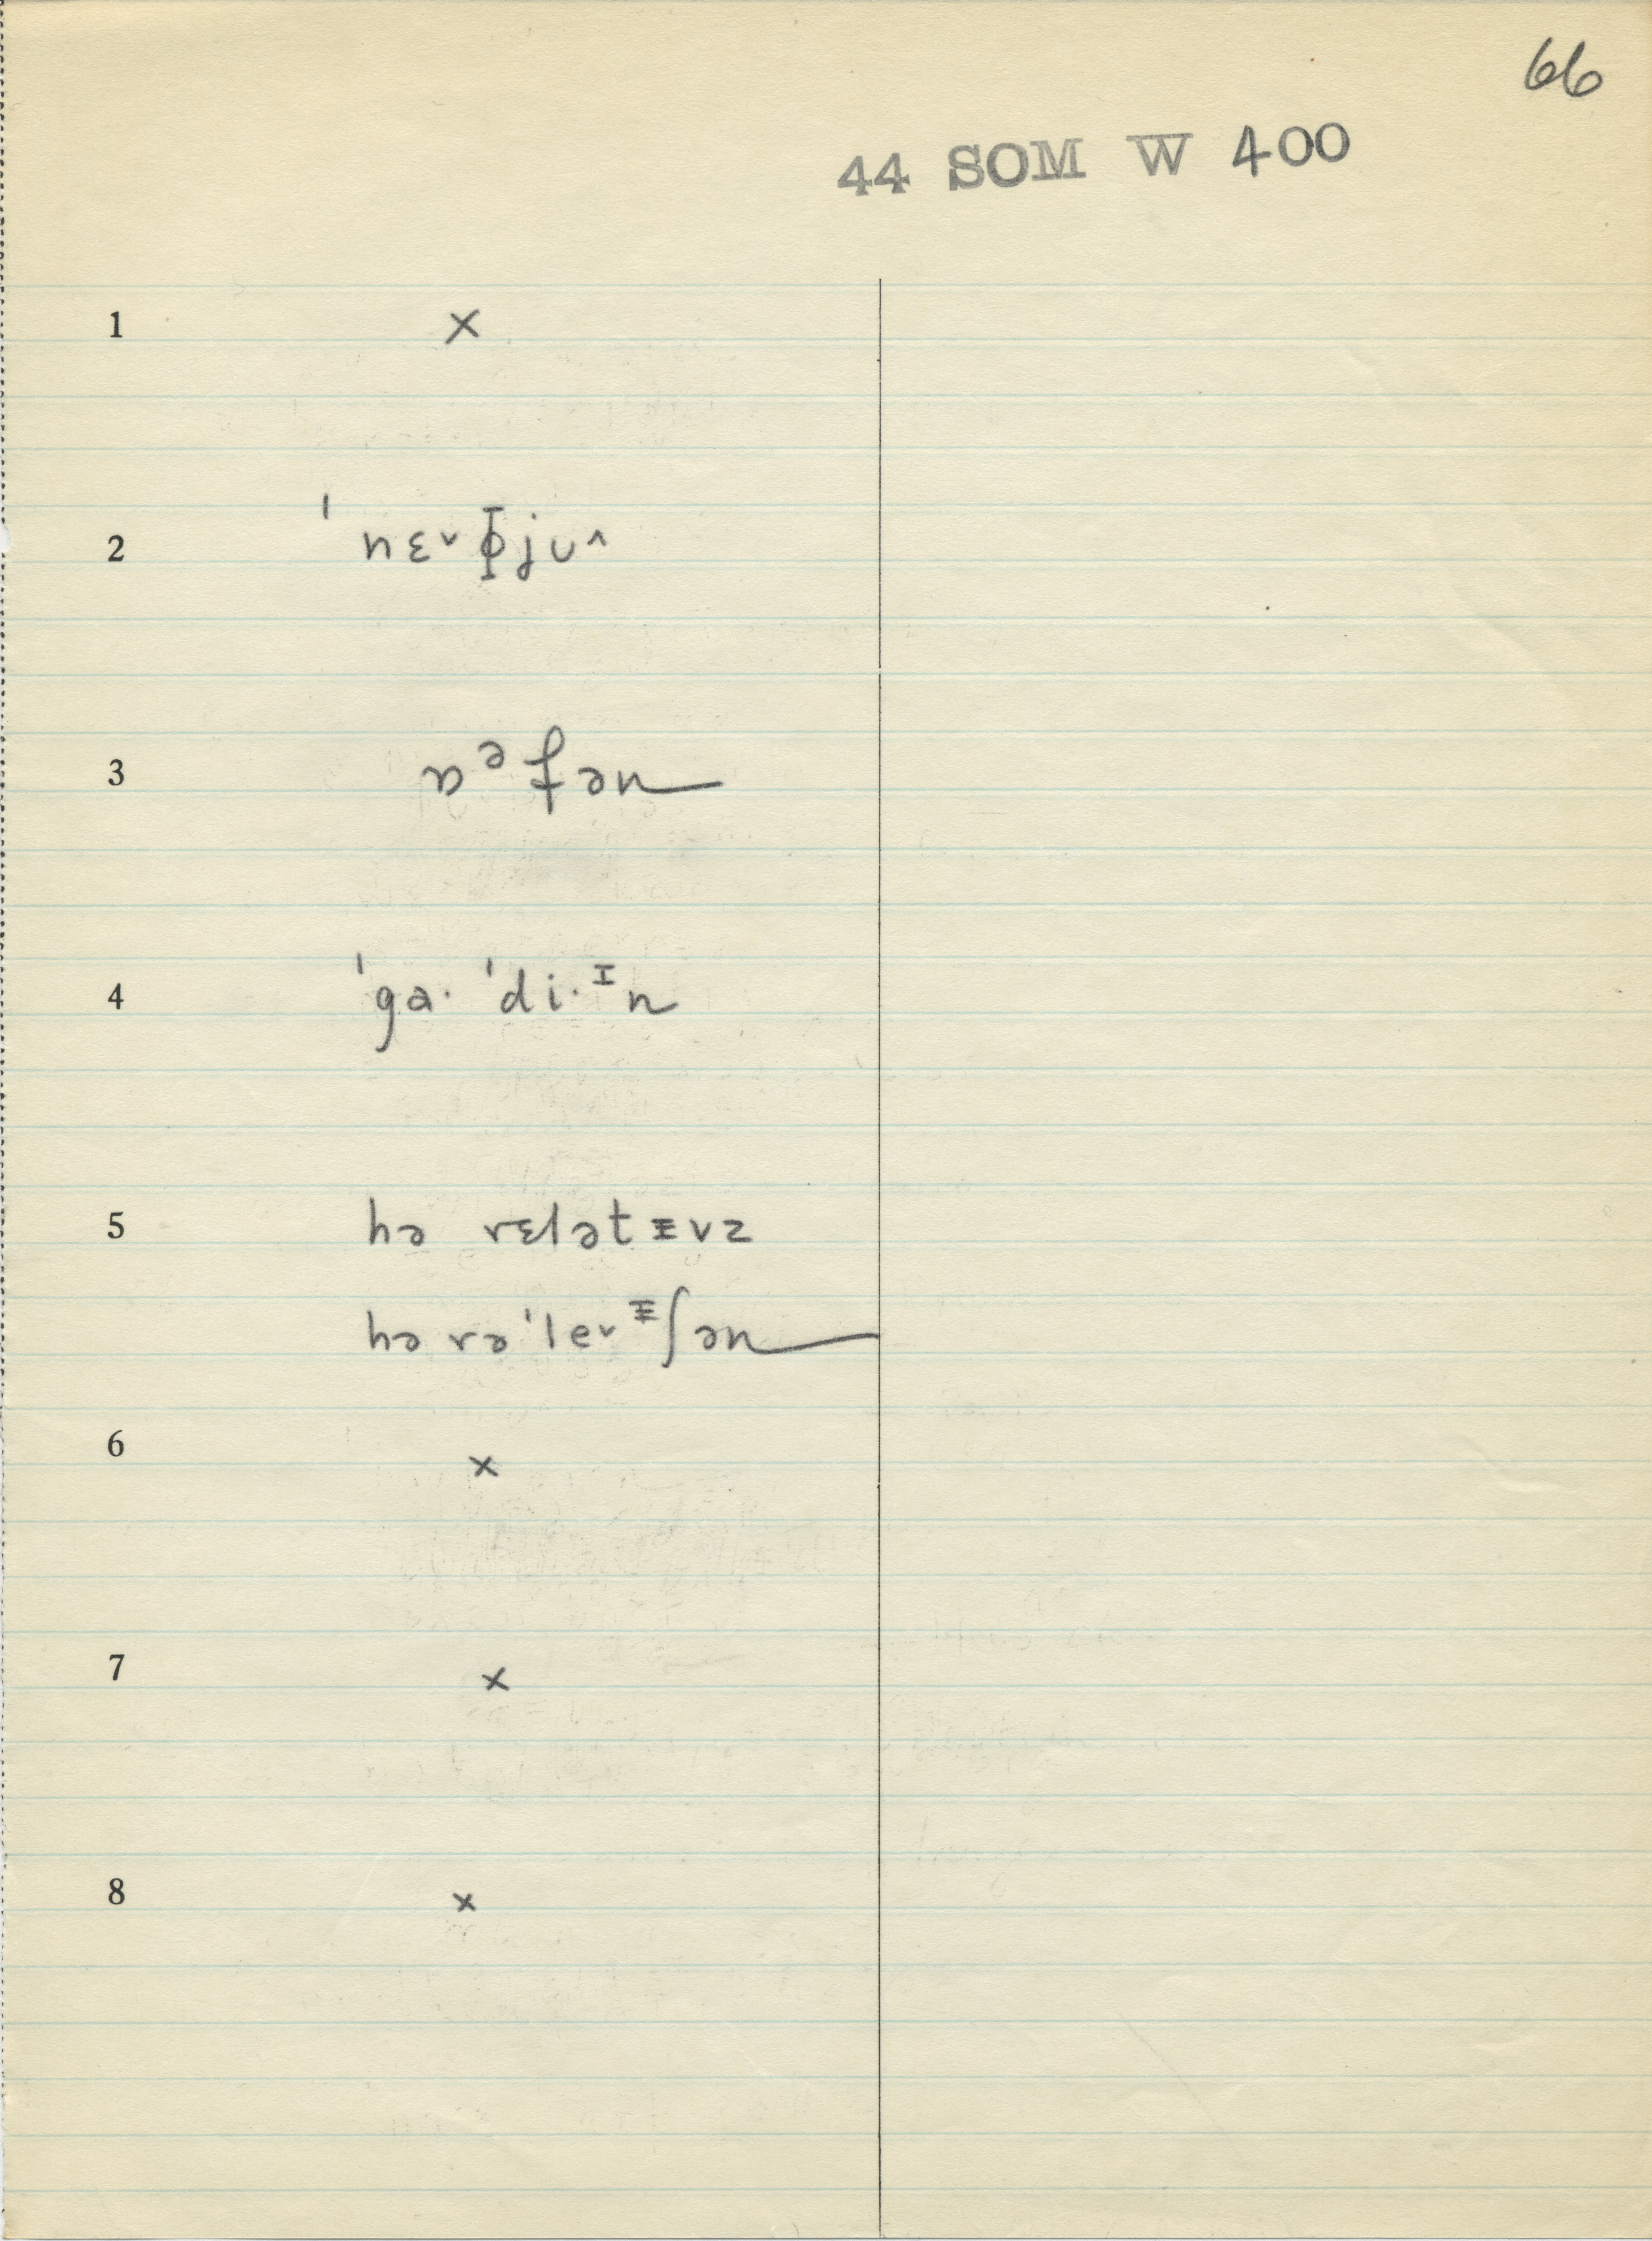 66
44 SOM W 400
1 ×
2 ˈnɛ˅ɸju˄
3 ɒᵊfən
4 ˈga· ˈdi·ᴵn
5 hə rɛlətᵻvz
hə rəˈle˅ᵻʃən
6 ×
7 ×
8 ×